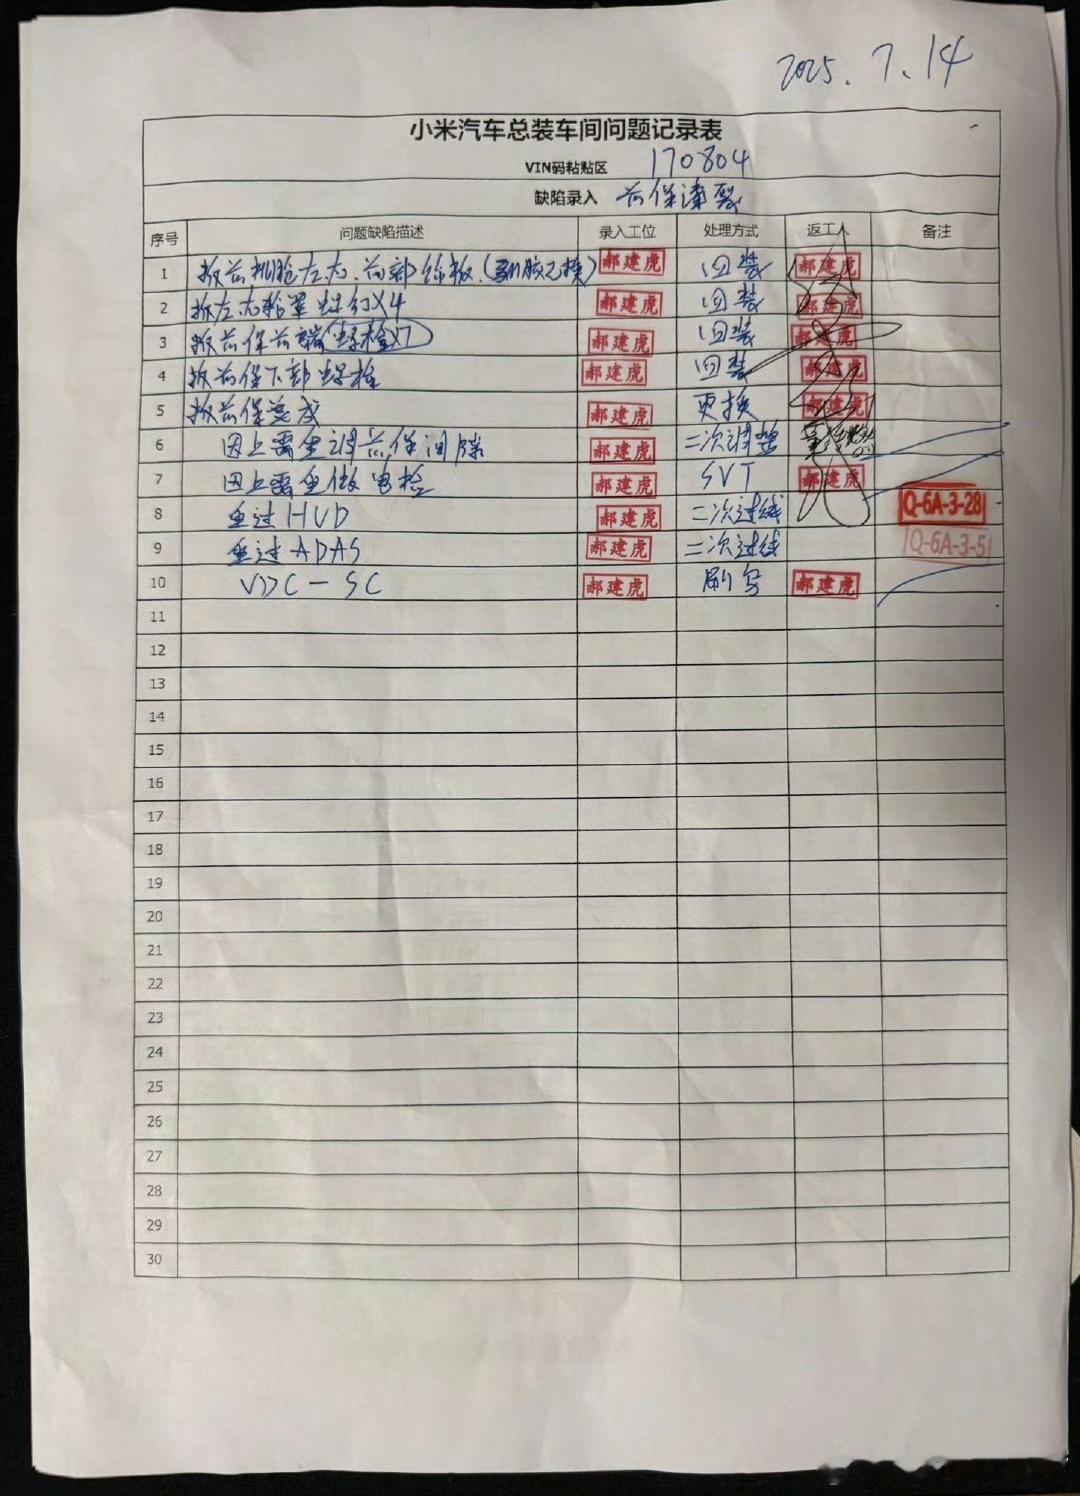 2025.7.14
小米汽车总装车间问题记录表
VIN码粘贴区 170804
缺陷录入 前保漆裂
序号 问题缺陷描述 录入工位 处理方式 返工人 备注
1 拆前机舱左右.前部饰板.( 胶已换) 郝建虎 回装 郝建虎
2 拆左右轮罩螺钉X4 郝建虎 回装 郝建虎
3 拆前保前端螺栓X7 郝建虎 回装 郝建虎
4 拆前保下部螺栓 郝建虎 回装 郝建虎
5 拆前保总成 郝建虎 更换 郝建虎
6 因上需重调前保间隙 郝建虎 二次调整
7 因上需重做电检 郝建虎 SVT 郝建虎
8 重过HUD 郝建虎 二次过线 Q-6A-3-28
9 重过ADAS 郝建虎 二次过线 Q-6A-3-5
10 VDC-SC 郝建虎 刷写 郝建虎
11
12
13
14
15
16
17
18
19
20
21
22
23
24
25
26
27
28
29
30